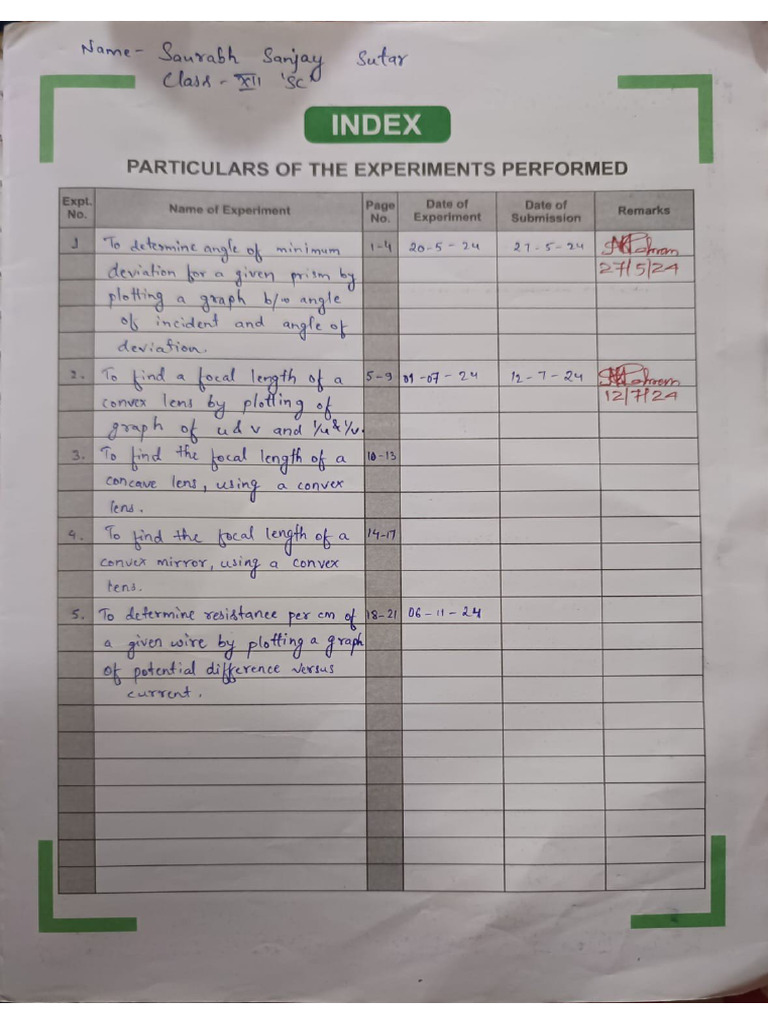 Name - Saurabh Sanjay Sutar
Class - XII 'Sc'
INDEX
PARTICULARS OF THE EXPERIMENTS PERFORMED
Expt. No. Name of Experiment Page No. Date of Experiment Date of Submission Remarks
1 To determine angle of minimum 1-4 20-5-24 27-5-24
deviation for a given prism by 27/5/24
plotting a graph b/w angle
of incident and angle of
deviation.
2. To find a focal length of a 5-9 01-07-24 12-7-24
convex lens by plotting of 12/7/24
graph of u & v and 1/u & 1/v.
3. To find the focal length of a 10-13
concave lens, using a convex
lens.
4. To find the focal length of a 14-17
convex mirror, using a convex
lens.
5. To determine resistance per cm of 18-21 06-11-24
a given wire by plotting a graph
of potential difference versus
current.